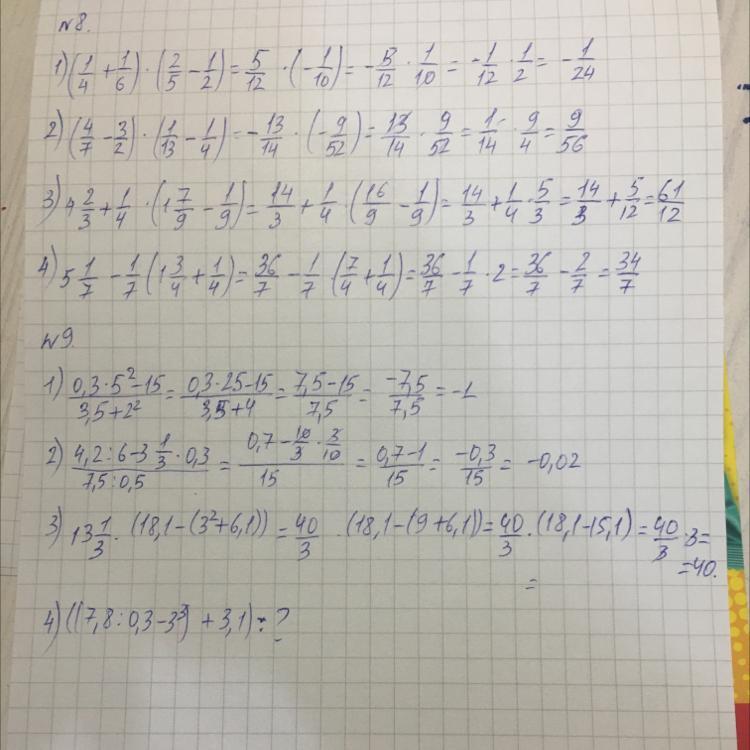 №8.
1) (1/4 + 1/6) · (2/5 - 1/2) = 5/12 · (-1/10) = -5/12 · 1/10 = -1/12 · 1/2 = -1/24
2) (4/7 - 3/2) · (1/13 - 1/4) = -13/14 · (-9/52) = 13/14 · 9/52 = 1/14 · 9/4 = 9/56
3) 4 2/3 + 1/4 · (1 7/9 - 1/9) = 14/3 + 1/4 · (16/9 - 1/9) = 14/3 + 1/4 · 5/3 = 14/3 + 5/12 = 61/12
4) 5 1/7 - 1/7 (1 3/4 + 1/4) = 36/7 - 1/7 · (7/4 + 1/4) = 36/7 - 1/7 · 2 = 36/7 - 2/7 = 34/7
№9.
1) (0,3 · 5² - 15)/(3,5 + 2²) = (0,3 · 25 - 15)/(3,5 + 4) = (7,5 - 15)/7,5 = -7,5/7,5 = -1
2) (4,2 : 6 - 3 1/3 · 0,3)/(7,5 : 0,5) = (0,7 - 10/3 · 3/10)/15 = (0,7 - 1)/15 = -0,3/15 = -0,02
3) 13 1/3 · (18,1 - (3² + 6,1)) = 40/3 · (18,1 - (9 + 6,1)) = 40/3 · (18,1 - 15,1) = 40/3 · 3 =
= 40.
=
4) ((7,8 : 0,3 - 3³) + 3,1) : ?